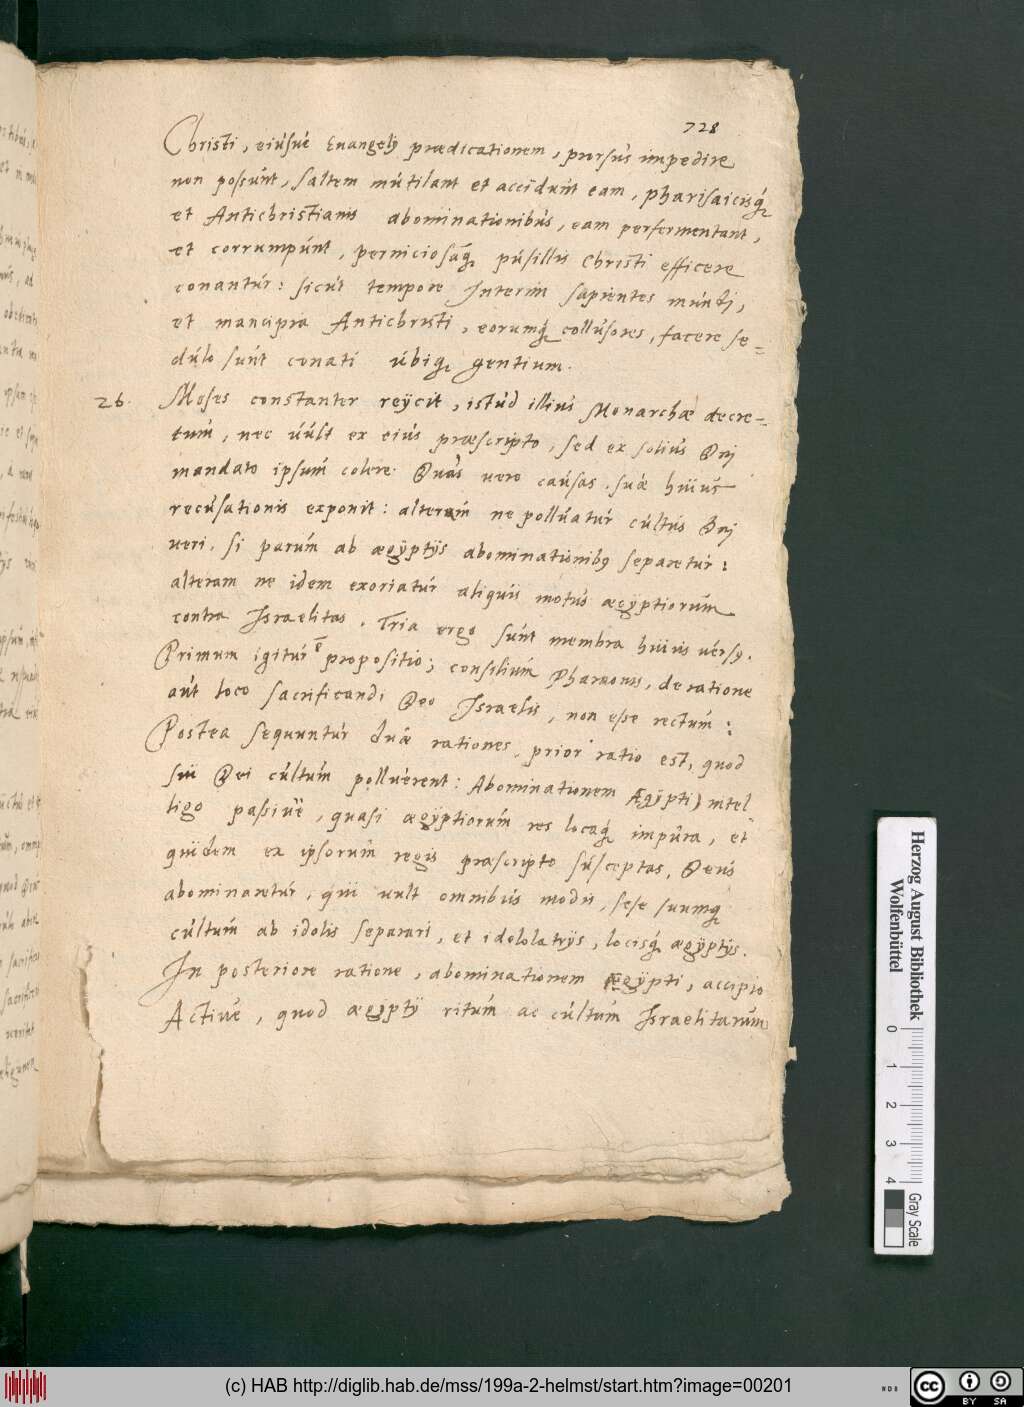 728
Christi, eiúsue Euangelij praedicationem, prorsús impedire
non possúnt, saltem mútilant et accidúnt eam, pharisaicisq́
et Antichristianis abominationibús, eam perfermentant,
et corrumpúnt, perniciosāq́ púsillis Christi efficere
conantúr: sicút tempore Interim sapientes múndi,
et mancipia Antichristi, eorumq́ collúsores, facere se=
dúlo súnt conati úbiq́ gentium.
26. Moses constanter reÿcit, istúd illiús Monarchæ decre=
túm, nec vúlt ex eiús præscripto, sed ex soliús Dei
mandato ipsúm colere. Dúas vero caúsas súæ húiús
recúsationis exponit: alteram ne pollúatúr cúltús Dei
veri, si parúm ab ægÿptijs abominationibꝰ separetúr:
alteram ne idem exoriatúr aliqúis motús ægÿptiorúm
contra Israelitas. Tria ergo súnt membra húiús vérsꝰ.
Primum igitúr ē propositio; consiliúm Pharaonis, de ratione
aút loco sacrificandi Deo Israelis, non esse rectúm:
Postea sequuntúr dúæ rationes, prior ratio est, quod
súi Dei cúltúm pollúerent: Abominationem Ægÿpti) intel
ligo passiúè, quasi ægÿptiorúm res locaq́ impúra, et
qúidem ex ipsorúm regis præscripto súsceptas, Deús
abominaretúr, qúi vult omnibús modis, sese suumq́
cúltúm ab idolis separari, et idololatrijs, locisq́ ægÿptijs.
In posteriore ratione, abominationem Ægÿpti, accipio
Actiúè, quod ægÿptij ritúm ac cúltúm Israelitarúm
Herzog August Bibliothek
Wolfenbüttel
0 1 2 3 4
Gray Scale
(c) HAB http://diglib.hab.de/mss/199a-2-helmst/start.htm?image=00201
cc BY SA